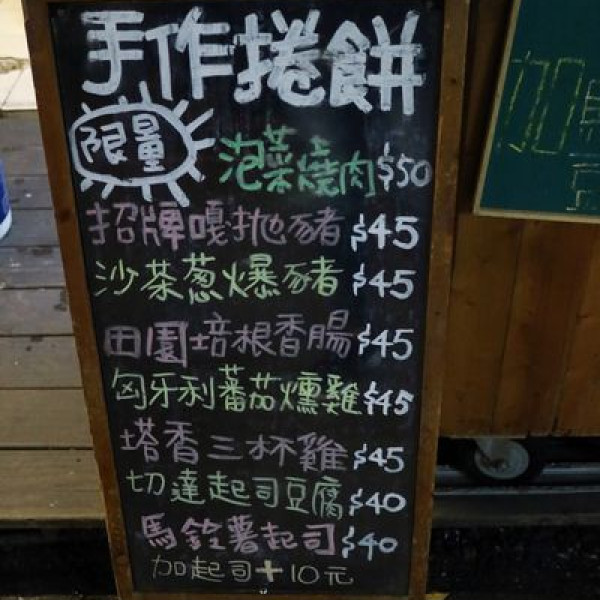 手作捲餅
限量
泡菜燒肉$50
招牌嘎抛豬$45
沙茶葱爆豬$45
田園培根香腸$45
匈牙利蕃茄燻雞$45
塔香三杯雞$45
切達起司豆腐$40
馬鈴薯起司$40
加起司+10元
加